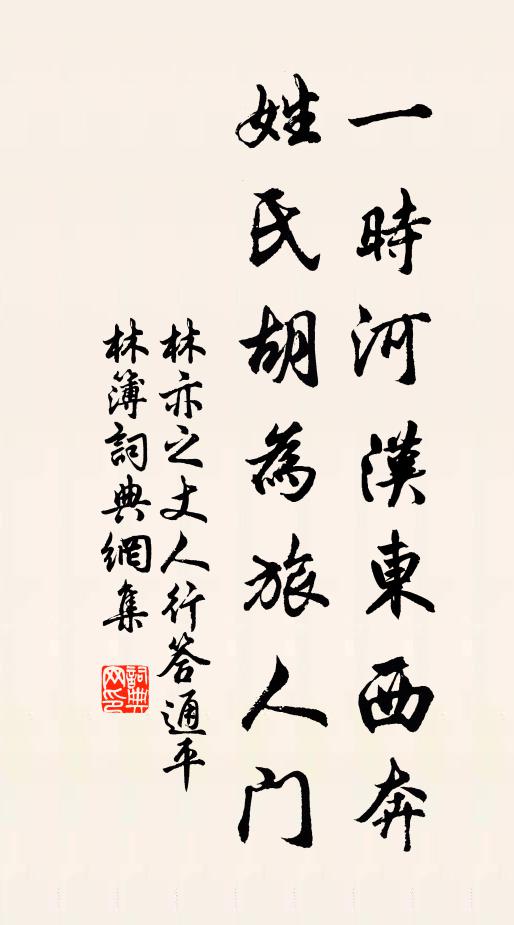 一時河漢東西奔
姓氏胡為旅人門
林亦之丈人行答通平
林簿詞典網集
詞典網印